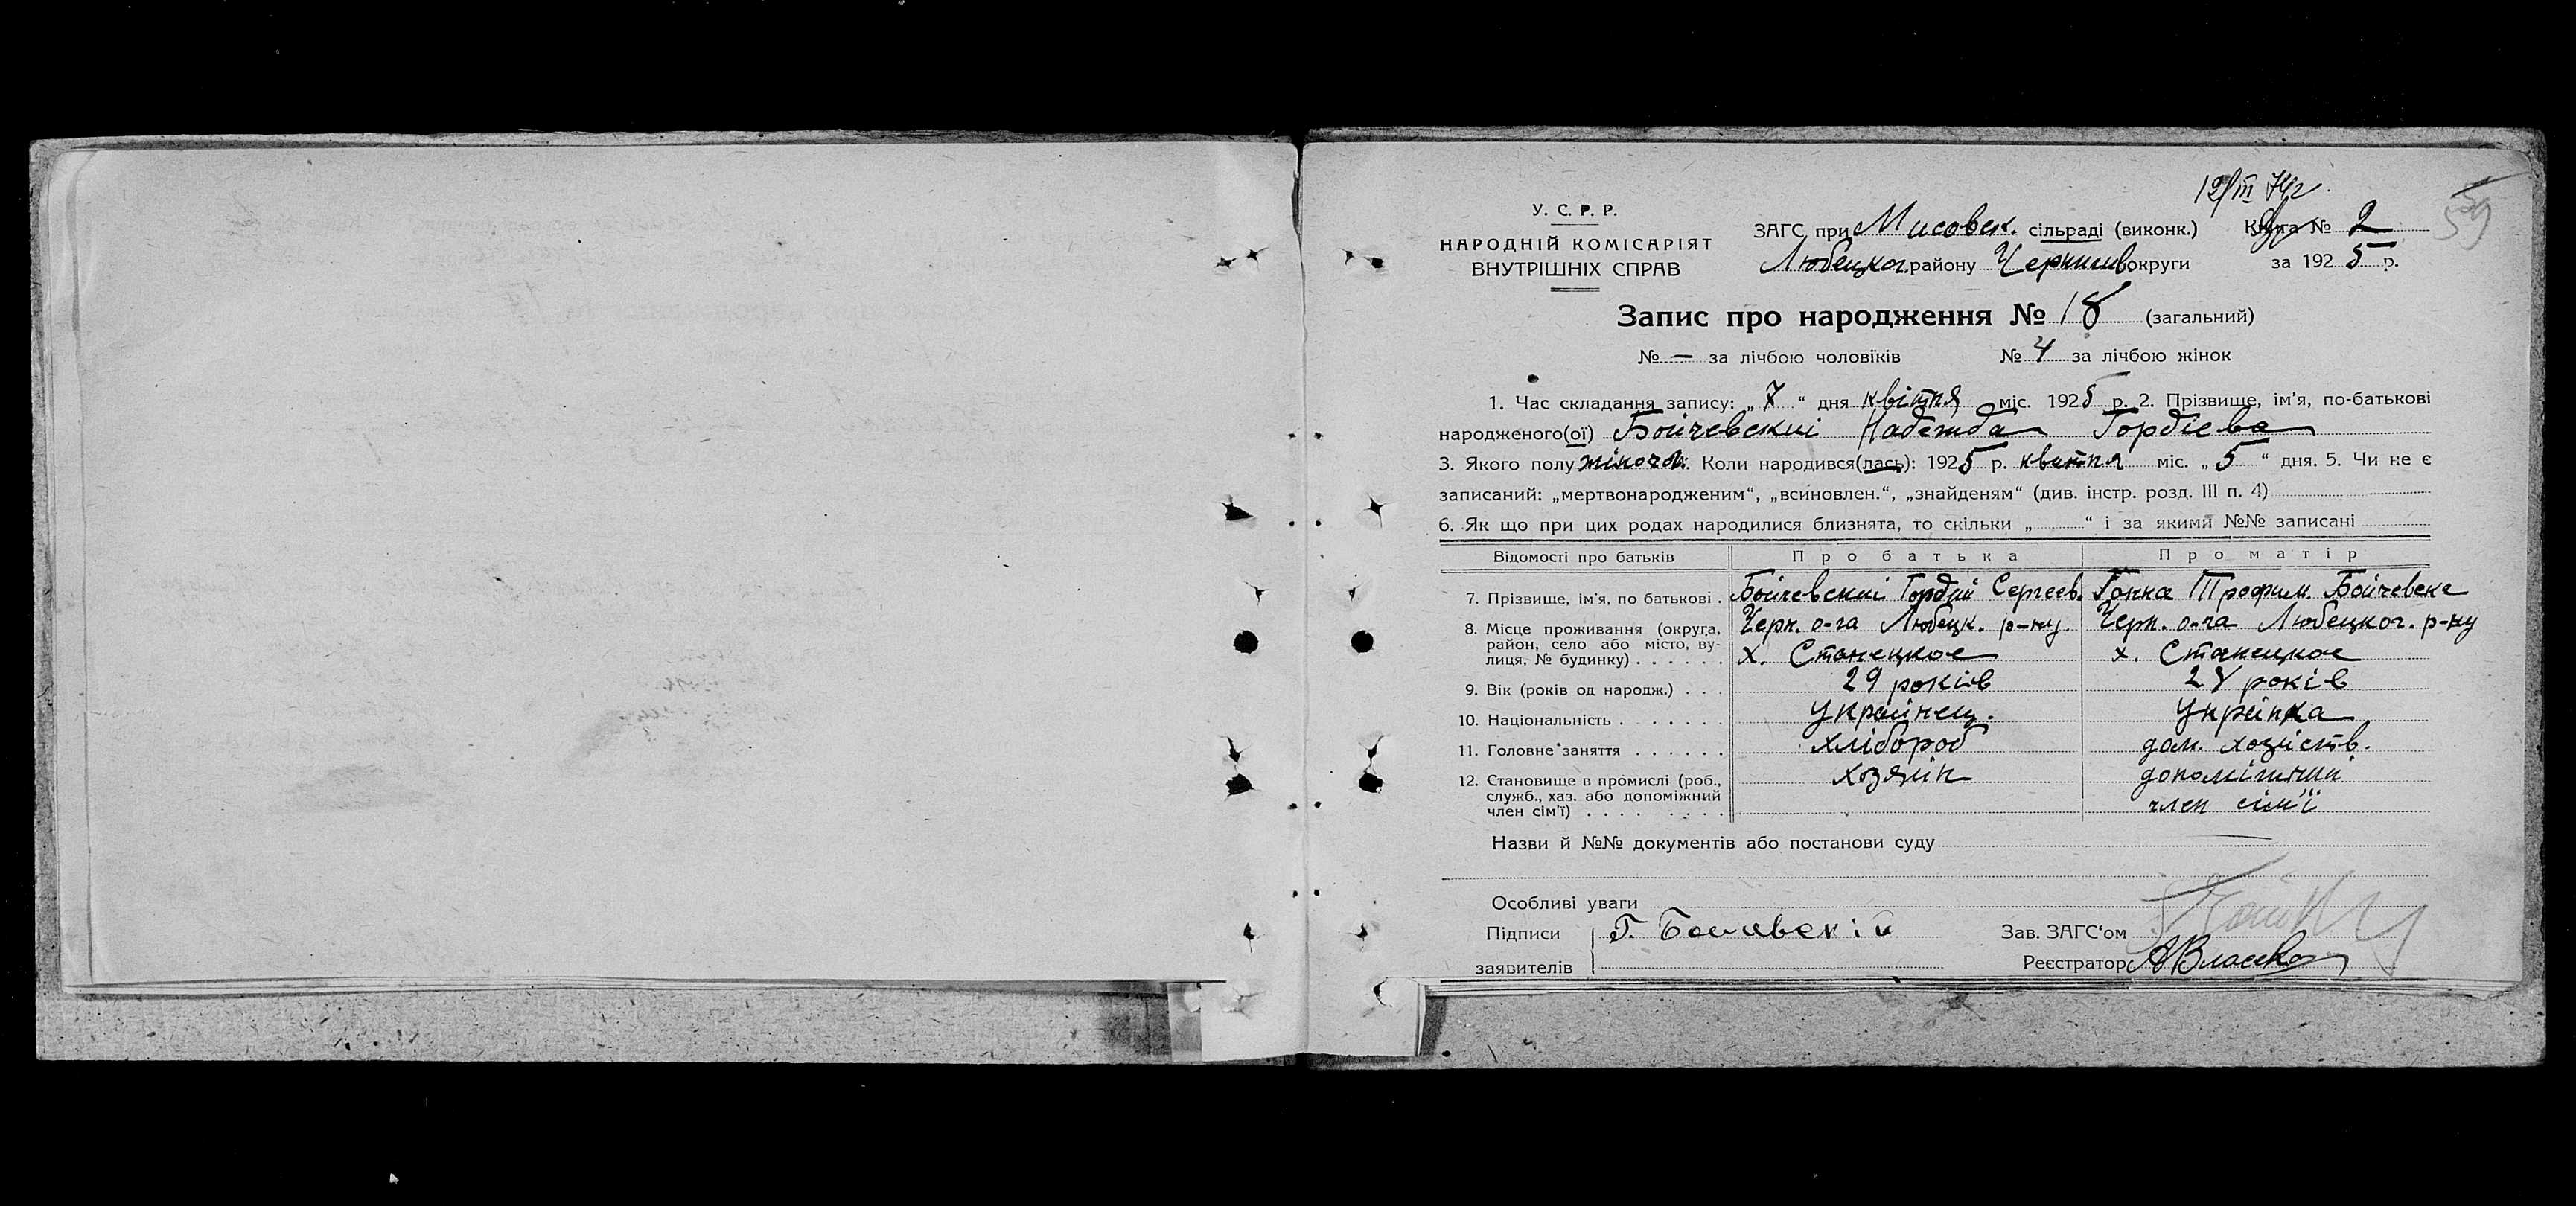 12/III 74 г.
59
У. С. Р. Р.
НАРОДНІЙ КОМІСАРІЯТ
ВНУТРІШНІХ СПРАВ
ЗАГС при Мисовск. сільраді (виконк.) Книга № 2
Любецког. району Чернигив. округи за 1925 р.
Запис про народження № 18 (загальний)
№ — за лічбою чоловіків № 4 за лічбою жінок
1. Час складання запису: „ 7 “ дня квітня міс. 1925 р. 2. Прізвище, ім’я, по-батькові
народженого(ої) Бойчевскиі Надежда Гордіева
3. Якого полу жіночой. Коли народився(лась): 1925 р. квітня міс. „ 5 “ дня. 5. Чи не є
записаний: „мертвонародженим“, „всиновлен.“, „знайденям“ (див. інстр. розд. III п. 4)
6. Як що при цих родах народилися близнята, то скільки „ “ і за якими №№ записані
Відомості про батьків Про батька Про матір
7. Прізвище, ім’я, по батькові . Бойчевскиі Гордий Сергеев. Ганна Трофим. Бойчевска
8. Місце проживання (округа, район, село або місто, вулиця, № будинку) Черн. о-га Любецк. р-ну. Черн. о-га Любецког. р-ну
х. Станецкое х. Станецкое
9. Вік (років од народж.) . . . 29 років 28 років
10. Національність . . . . . . . Украінец. Украінка
11. Головне заняття . . . . . . хлібороб дом. хозяіств.
12. Становище в промислі (роб., хозяін допоміжний
служб., хаз. або допоміжний
член сім’ї) . . . . . . . . член сім’ї
Назви й №№ документів або постанови суду
Особливі уваги
Підписи Г. Бойчевскій Зав. ЗАГС‘ом
заявителів Реєстратор А Власенко